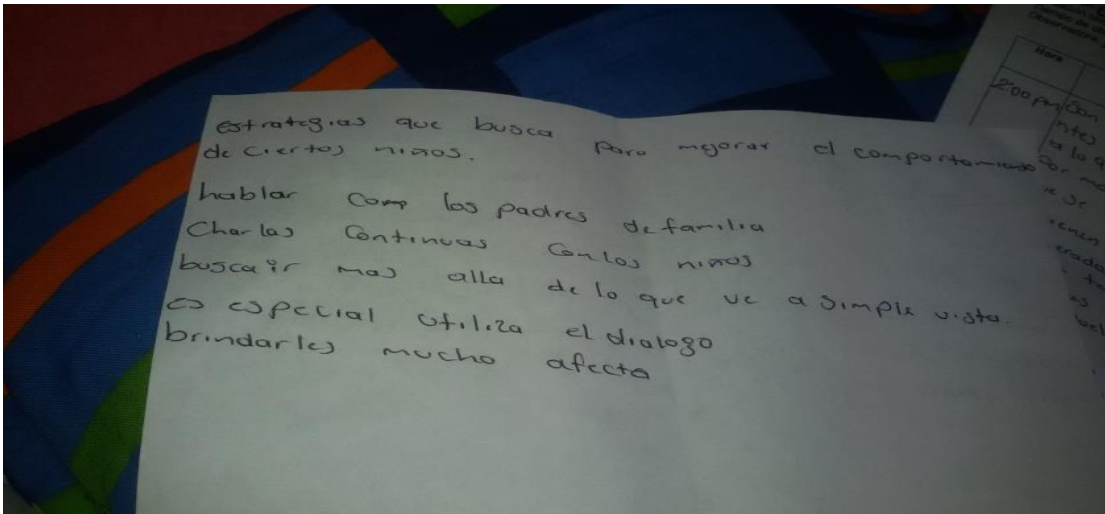 estrategias que busca para mejorar el comportamiento
de ciertos niños.
hablar com los padres de familia
Charlas Continuas Con los niños
busca ir mas alla de lo que ve a simple vista.
es especial utiliza el dialogo
brindarles mucho afecto
Hora
2:00 pm